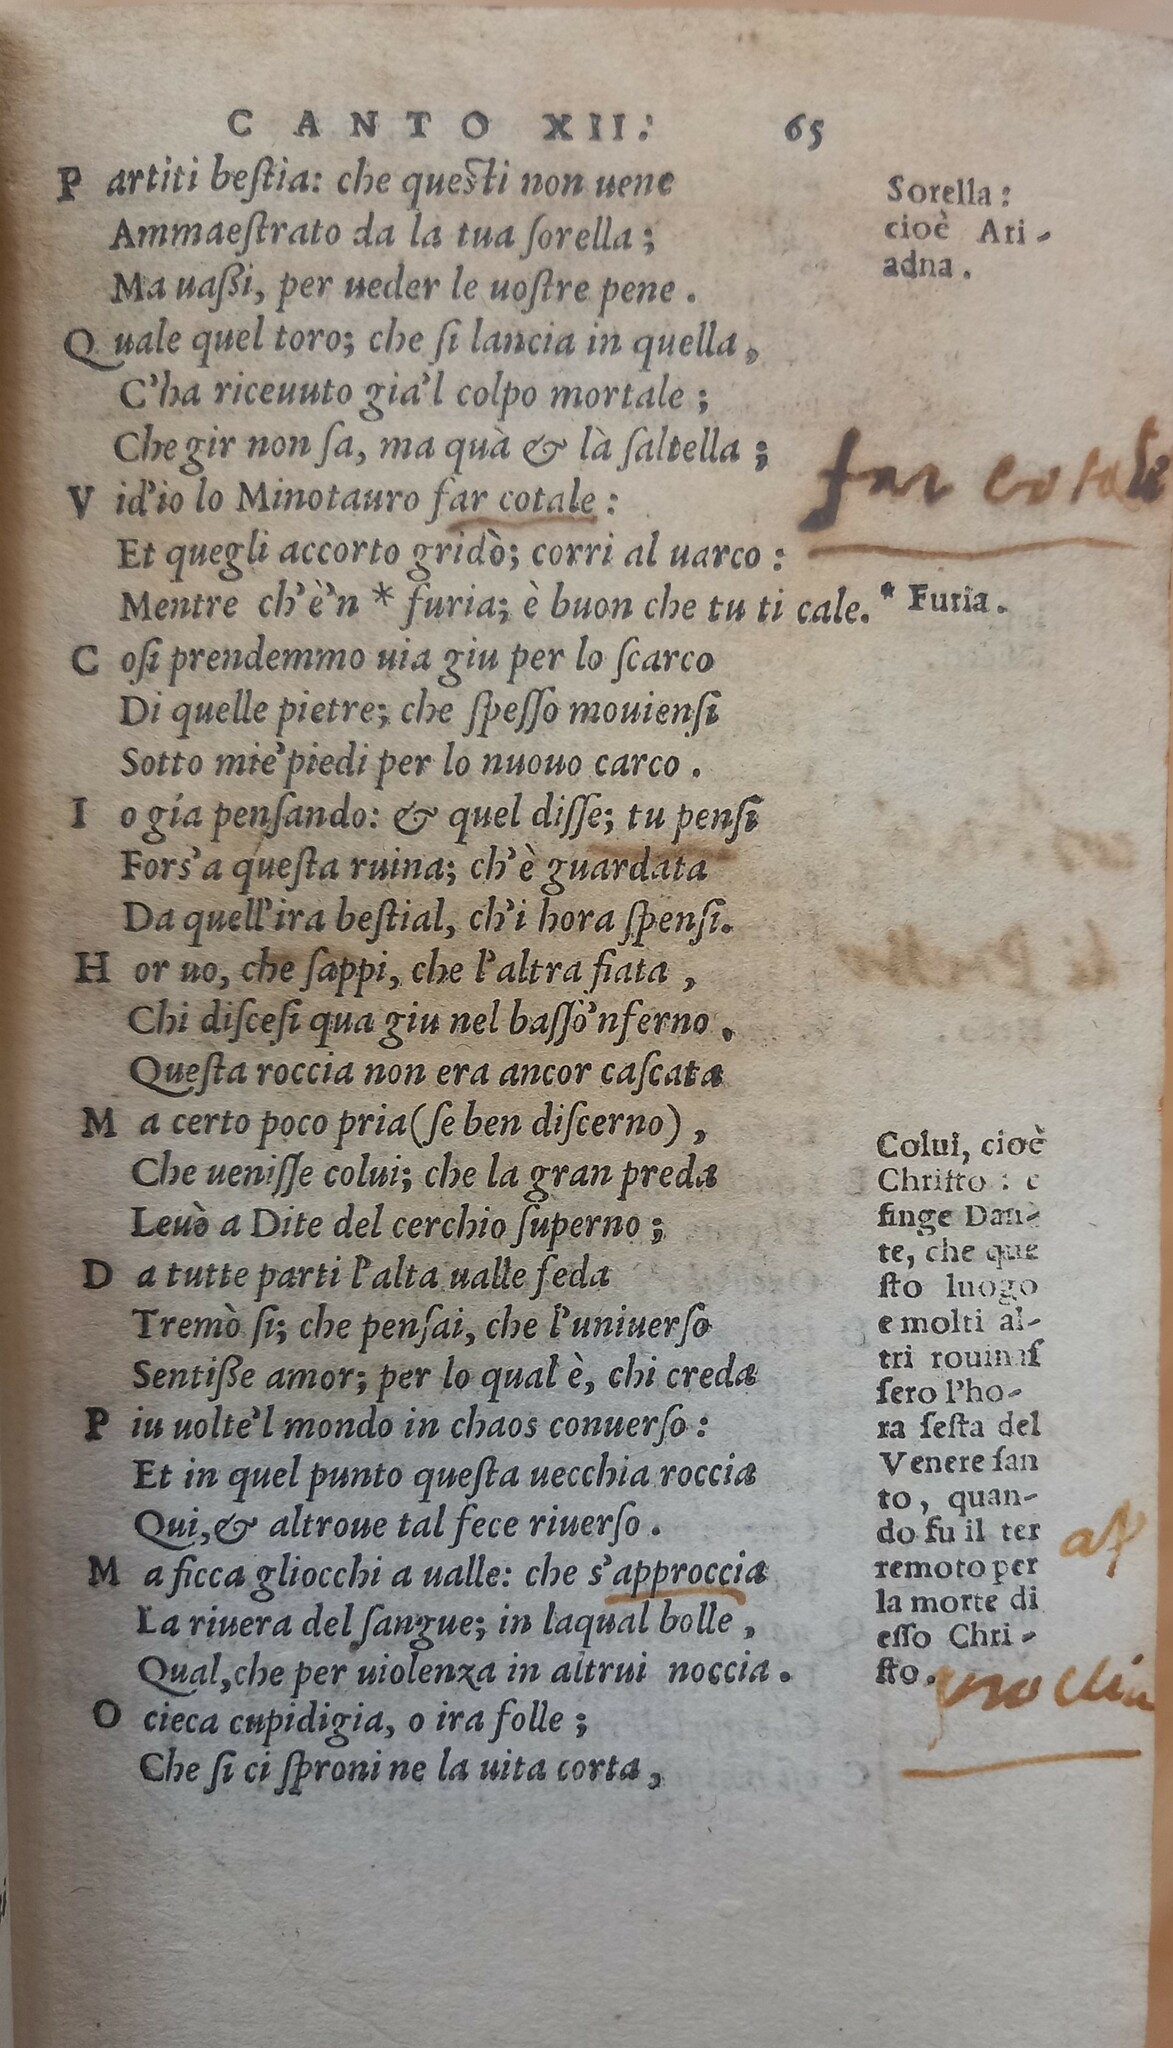 CANTO XII. 65
Partiti bestia: che questi non uene
Ammaestrato da la tua sorella;
Ma uassi, per ueder le uostre pene.
Quale quel toro; che si lancia in quella,
C'ha riceuuto gia'l colpo mortale;
Che gir non sa, ma quà & là saltella;
Vid'io lo Minotauro far cotale:
Et quegli accorto gridò; corri al uarco:
Mentre ch'è'n * furia; è buon che tu ti cale.
Cosi prendemmo uia giu per lo scarco
Di quelle pietre; che spesso mouiensi
Sotto mie'piedi per lo nuouo carco.
Io gía pensando: & quel disse; tu pensi
Fors'a questa ruina; ch'è guardata
Da quell'ira bestial, ch'i hora spensi.
Hor uo, che sappi, che l'altra fiata,
Chi discesi qua giu nel basso'nferno,
Questa roccia non era ancor cascata
Ma certo poco pria (se ben discerno),
Che uenisse colui; che la gran preda
Leuò a Dite del cerchio superno;
Da tutte parti l'alta ualle feda
Tremò si; che pensai, che l'uniuerso
Sentisse amor; per lo qual è, chi creda
Piu uolte'l mondo in chaos conuerso:
Et in quel punto questa uecchia roccia
Qui, & altroue tal fece riuerso.
Ma ficca gliocchi a ualle: che s'approccia
La riuera del sangue; in laqual bolle,
Qual, che per uiolenza in altrui noccia.
O cieca cupidigia, o ira folle;
Che si ci sproni ne la uita corta,
Sorella:
cioè Ari-
adna.
far cotale
* Furia.
Colui, cioè
Christo: e
finge Dan-
te, che que
sto luogo
e molti al-
tri rouinas
sero l'ho-
ra sesta del
Venere san
to, quan-
do fu il ter
remoto per
la morte di
esso Chri-
sto.
ap
procchia